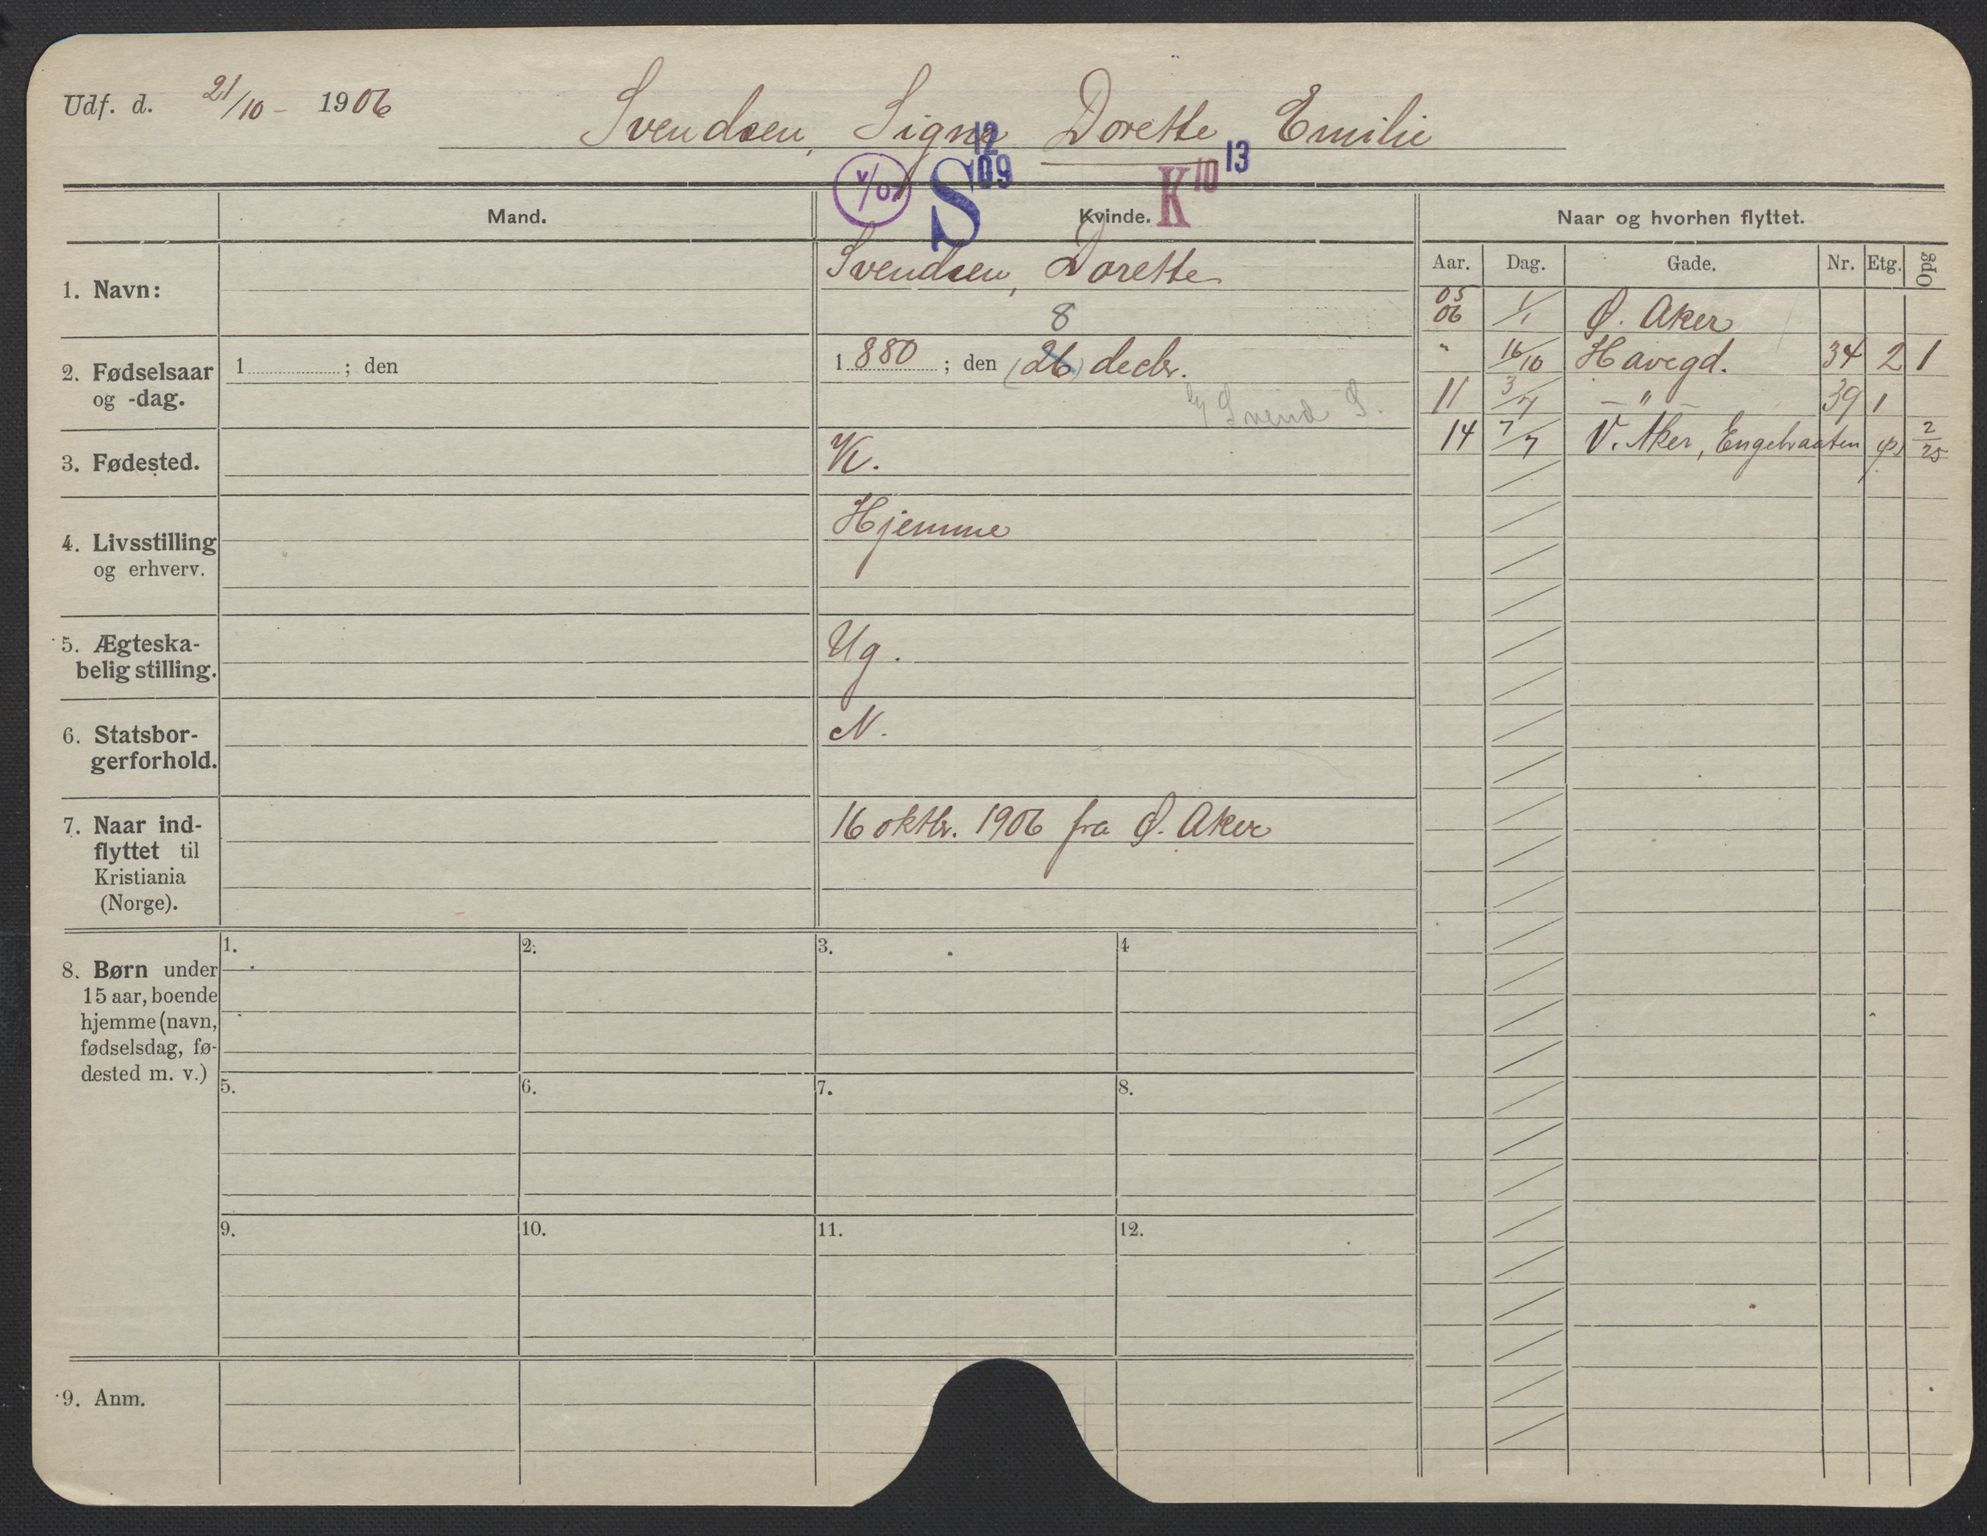 Udf. d. 21/10 - 1906
Svendsen, Signe Dorette Emilie
12
09
S
K 10 13
Mand.
Kvinde.
Naar og hvorhen flyttet.
Aar. Dag. Gade. Nr. Etg. Opg
1. Navn:
Svendsen, Dorette
05
06 1/1 Ø. Aker
" 16/10 Havegd. 34 2 1
11 3/7 — " — 39 1
14 7/7 V. Aker, Engebraaten 2/25
2. Fødselsaar
og -dag.
1 ; den
8
1880 ; den (26) decbr.
Svend S.
3. Fødested.
K.
4. Livsstilling
og erhverv.
Hjemme
5. Ægteska-
belig stilling.
Ug.
6. Statsbor-
gerforhold.
N.
7. Naar ind-
flyttet til
Kristiania
(Norge).
16 oktbr. 1906 fra Ø. Aker
8. Børn under
15 aar, boende
hjemme (navn,
fødselsdag, fø-
dested m. v.)
1. 2. 3. 4
5. 6. 7. 8.
9. 10. 11. 12.
9. Anm.